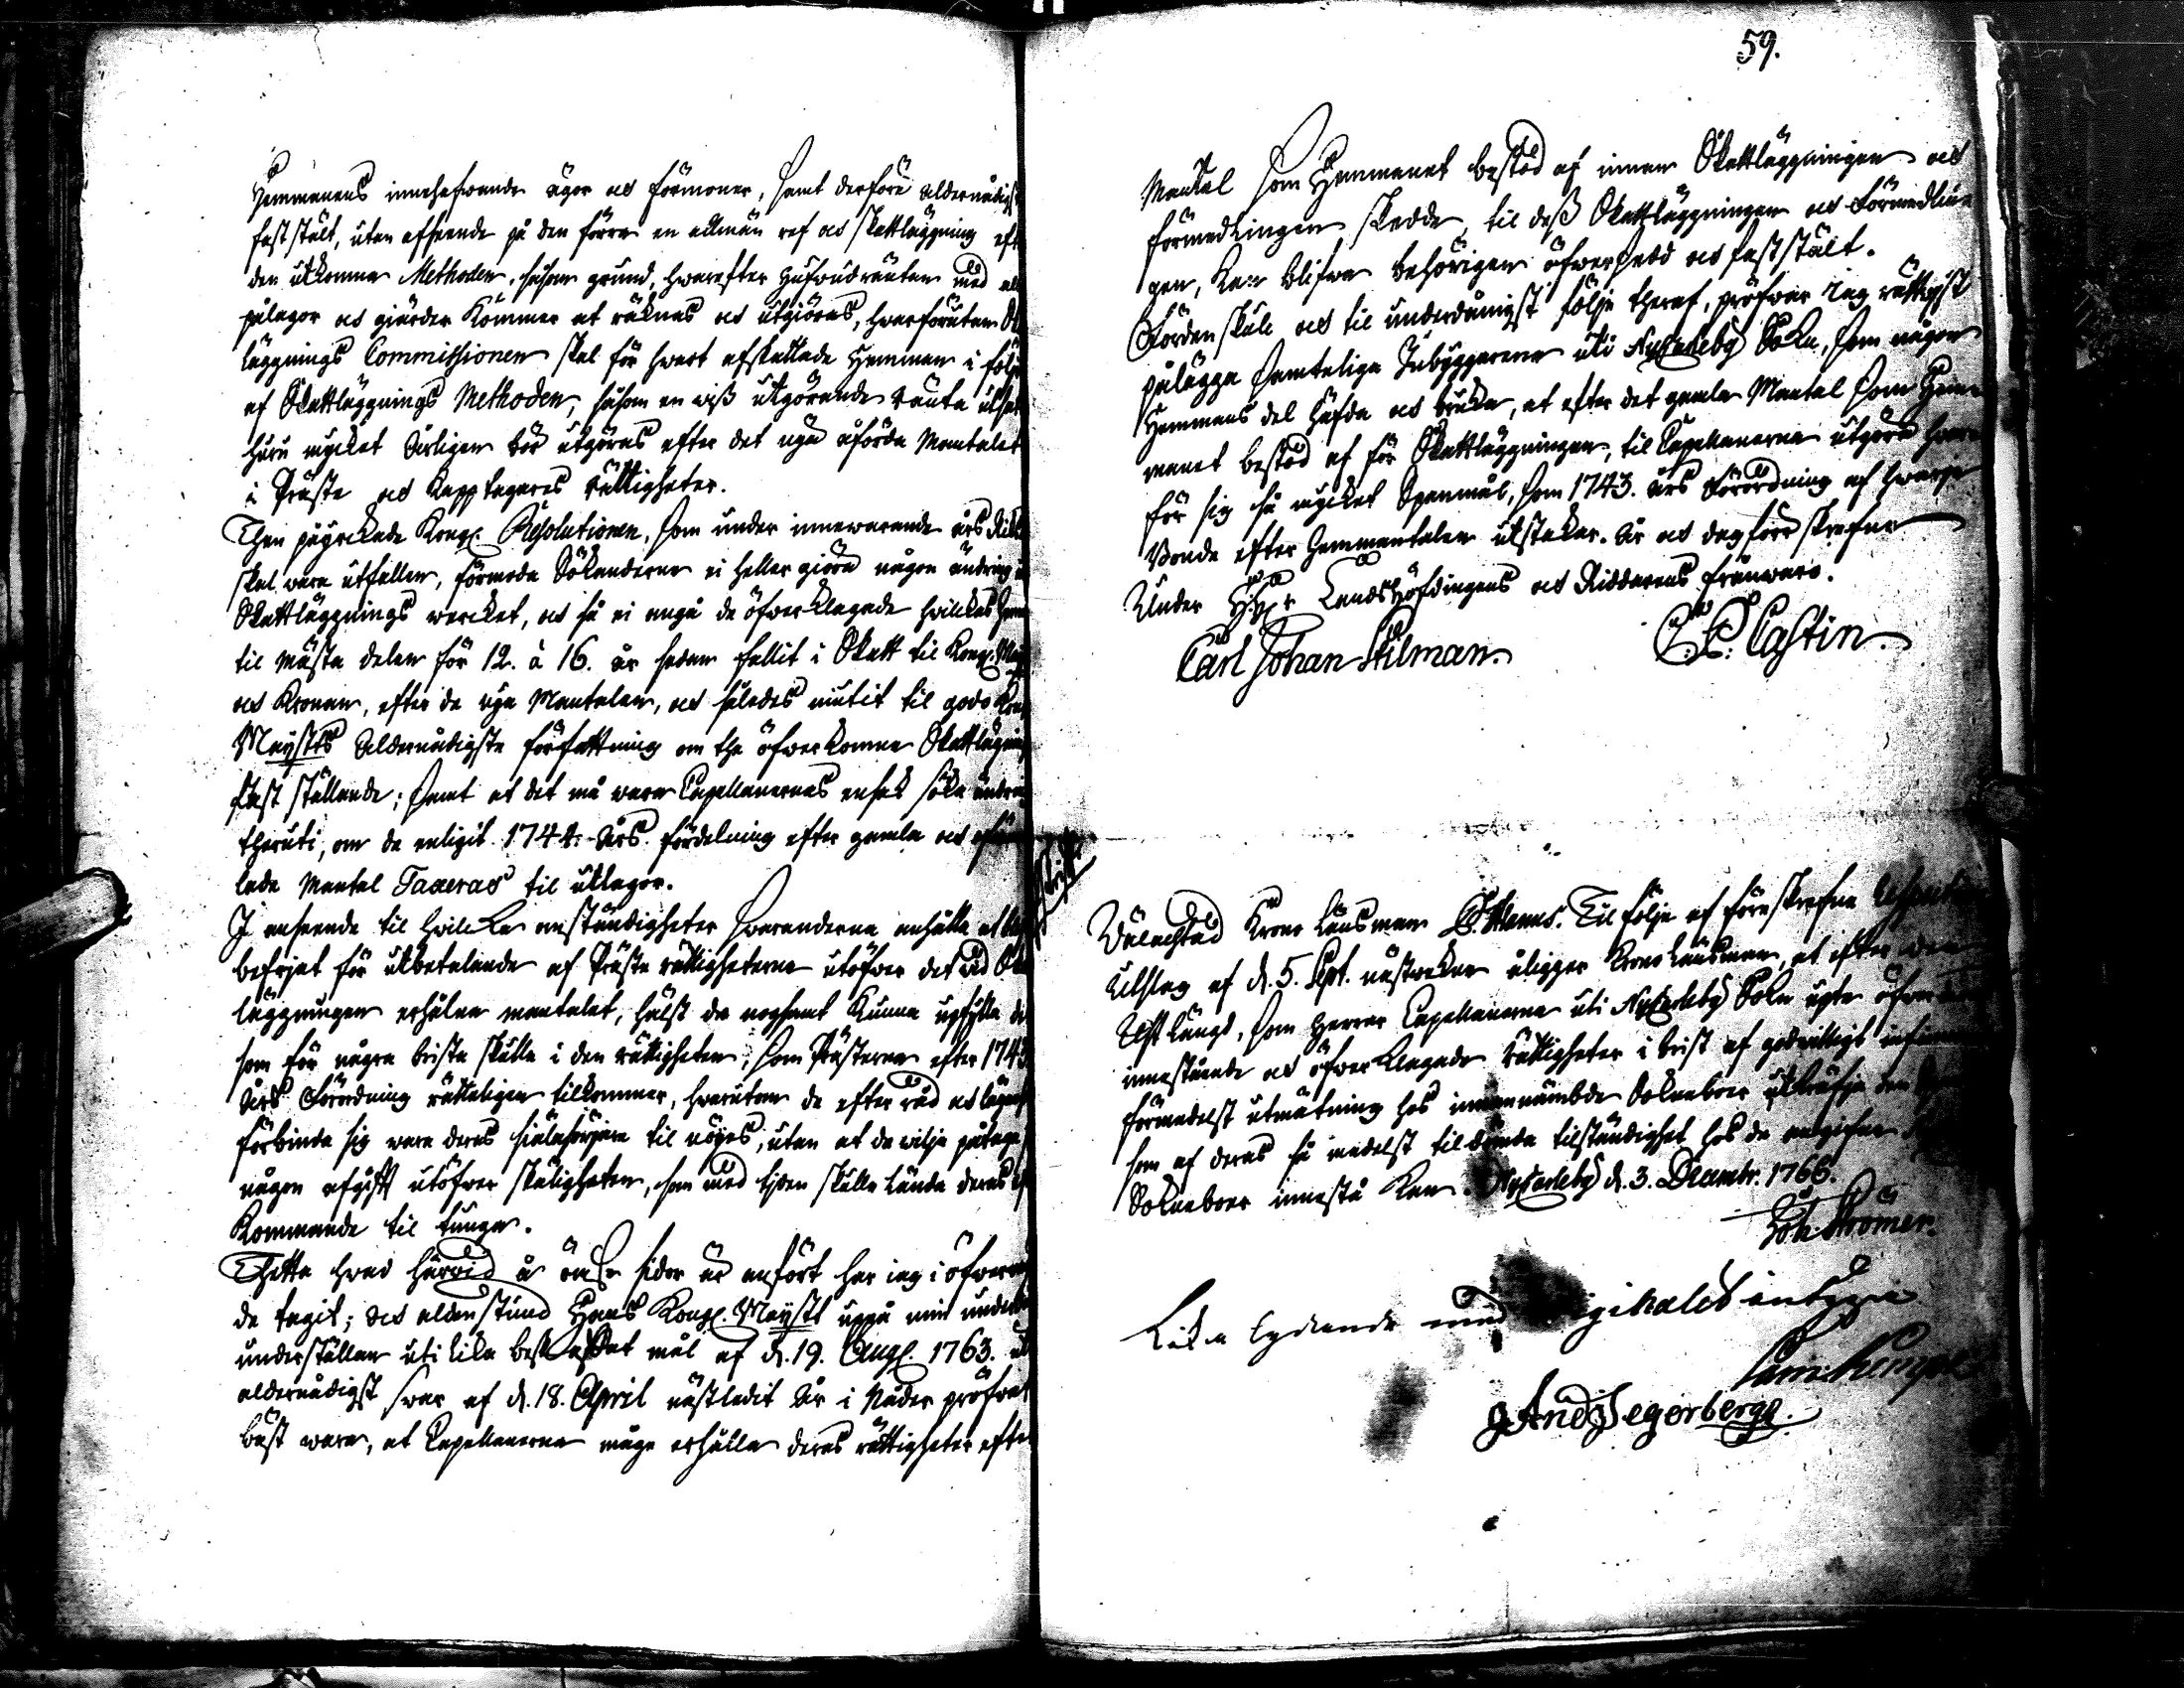 Hemmanens innehafwande ägor och förmoner, samt derföre aldernådigst
fast stält, utan afseende på den förra en allmän ref och skattläggning eft
den utkomne Methoden, såsom grund, hwarefter Hufwudräntan med
pålagor och giärder kommer at räknas och utgiöras, hwarförutan
läggnings Commissionen skal för hwart afskattade Hemman i följe
af Skattläggnings Methoden, såsom en wiß utgörande ränta
huru mycket årligen bör utgöras efter det nya åförda Mantalet
i Präste och Kapptagares rättigheter.
Then påyrckade Kongl. Resolutionen, som under innewarande års
skal wara utfallen, förmoda Sökanderne ei heller giöra någon ändring
Skattläggnings wercket, och så ei angå de öfwerklagade hwilckas
til mästa delen för 12. à 16. år sedan fallit i Skatt til Kongl. May
och Kronan, efter de nya Mantalen, och således niutit til godo
Mayst:ts Aldernådigste författning om the öfwerkomne Skattläggning
fast ställande; samt at det må wara Capellanernas ensak söka ändring
theruti, om de enligit 1744. års fördelning efter gamla och
lade Mantal Taxeras til utlagor.
I anseende til hwilcka omständigheter Swaranderna anhålla at
befrjat för utbetalande af Präste rättigheterne utöfwer det wid
läggningen erhålna mantalet, hälst de nogsamt kunna upfylla
som för några brista skulle i den rättigheten, som Prästerne efter 1743
Års Förordning rätteligen tilkommer, hwarutom de efter råd och lägenh
förbinda sig wara deras siälasörjare til nöjes, utan at de wilja påtaga
någon afgift utöfwer skäligheten, som med tjden skulle lända deras
Kommande til tunga.
Thetta hwad härwid å ömse sidor är anfört har iag i öfwer
de tagit; och aldenstund Hans Kongl. Mayst:t uppå min under
underställan uti lika beskaffat mål af d. 19. Aug. 1763.
aldernådigst swar af d. 18. April nästledit År i Nåder pröfwat
bäst wara, at Capellanerne måge erhålla deras rättigheter efter
59.
Mantal som Hemmanet bestod af innan Skattläggningen och
förmedlingen skedde, til deß Skattläggningen och Förmedlin
gen, kan blifwa behörigen öfwersedd och faststält.
Förden skull och til underdånigst följe theraf, pröfwar iag rättwist
pålägga samtelige Inbyggarena uti Nykarleby Sokn, som någon
Hemmans del häfda och bruka, at efter det gamla Mantal som Hem
manet bestod af för Skattläggningen, til Capellanerna utgöra hwar
för sig så mycket Spannmål, som 1743. års Förordning af hwarje
Bonde efter Hemmantalen utstakar. År och dag förr skrefne
Under H:r Landshöfdingens och Riddarens frånwaro.
Carl Johan Stilman. C. P. Castin.
Wälachtad Krono Länsman. Til följe af föreskrefne
Utslag af d. 5. Sept. nästwekne åligger Krono Länsman, at efter den
Rest Längd, som Herrar Capellanerna uti Nykarleby Sokn ägta öfwer
innestående och öfwerklagade rättigheter i brist af godwilligt
förmedelst utmätning hos innanämbde Soknebor utkräfja den
som af deras så medelst tildömda tilständighet hos de angifne
Soknebor innestå kan. Nykarleby d. 3. Decembr. 1766.
Joh. Strömer.
Lika lydande med originalet intyga
And: Segerberg.